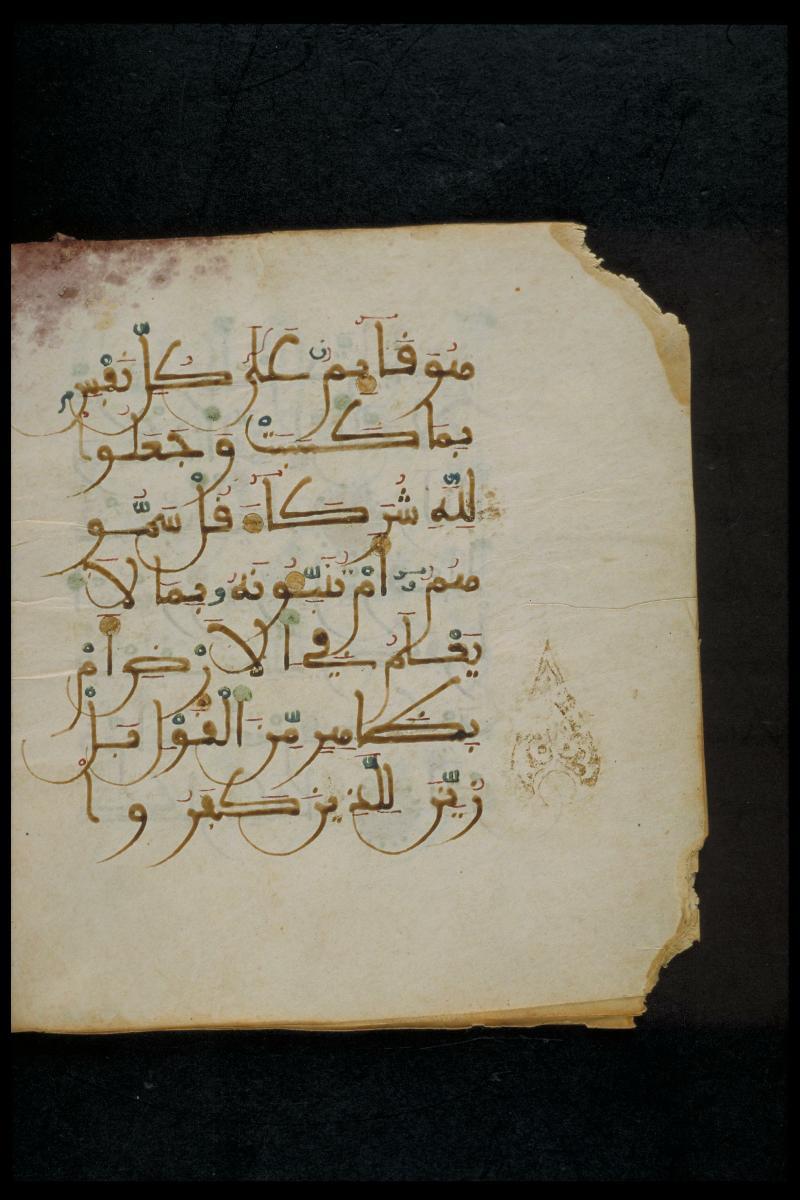 هُوَ قَآئِمٌ عَلَىٰ كُلِّ نَفْسٍ
بِمَا كَسَبَتْ وَجَعَلُوا
لِلَّهِ شُرَكَآءَ قُلْ سَمُّو
هُمُ أَمْ تُنَبِّـُٔونَهُ بِمَا لَا
يَعْلَمُ فِي الْأَرْضِ أَم
بِظَاهِرٍ مِّنَ الْقَوْلِ بَلْ
زُيِّنَ لِلَّذِينَ كَفَرُوا